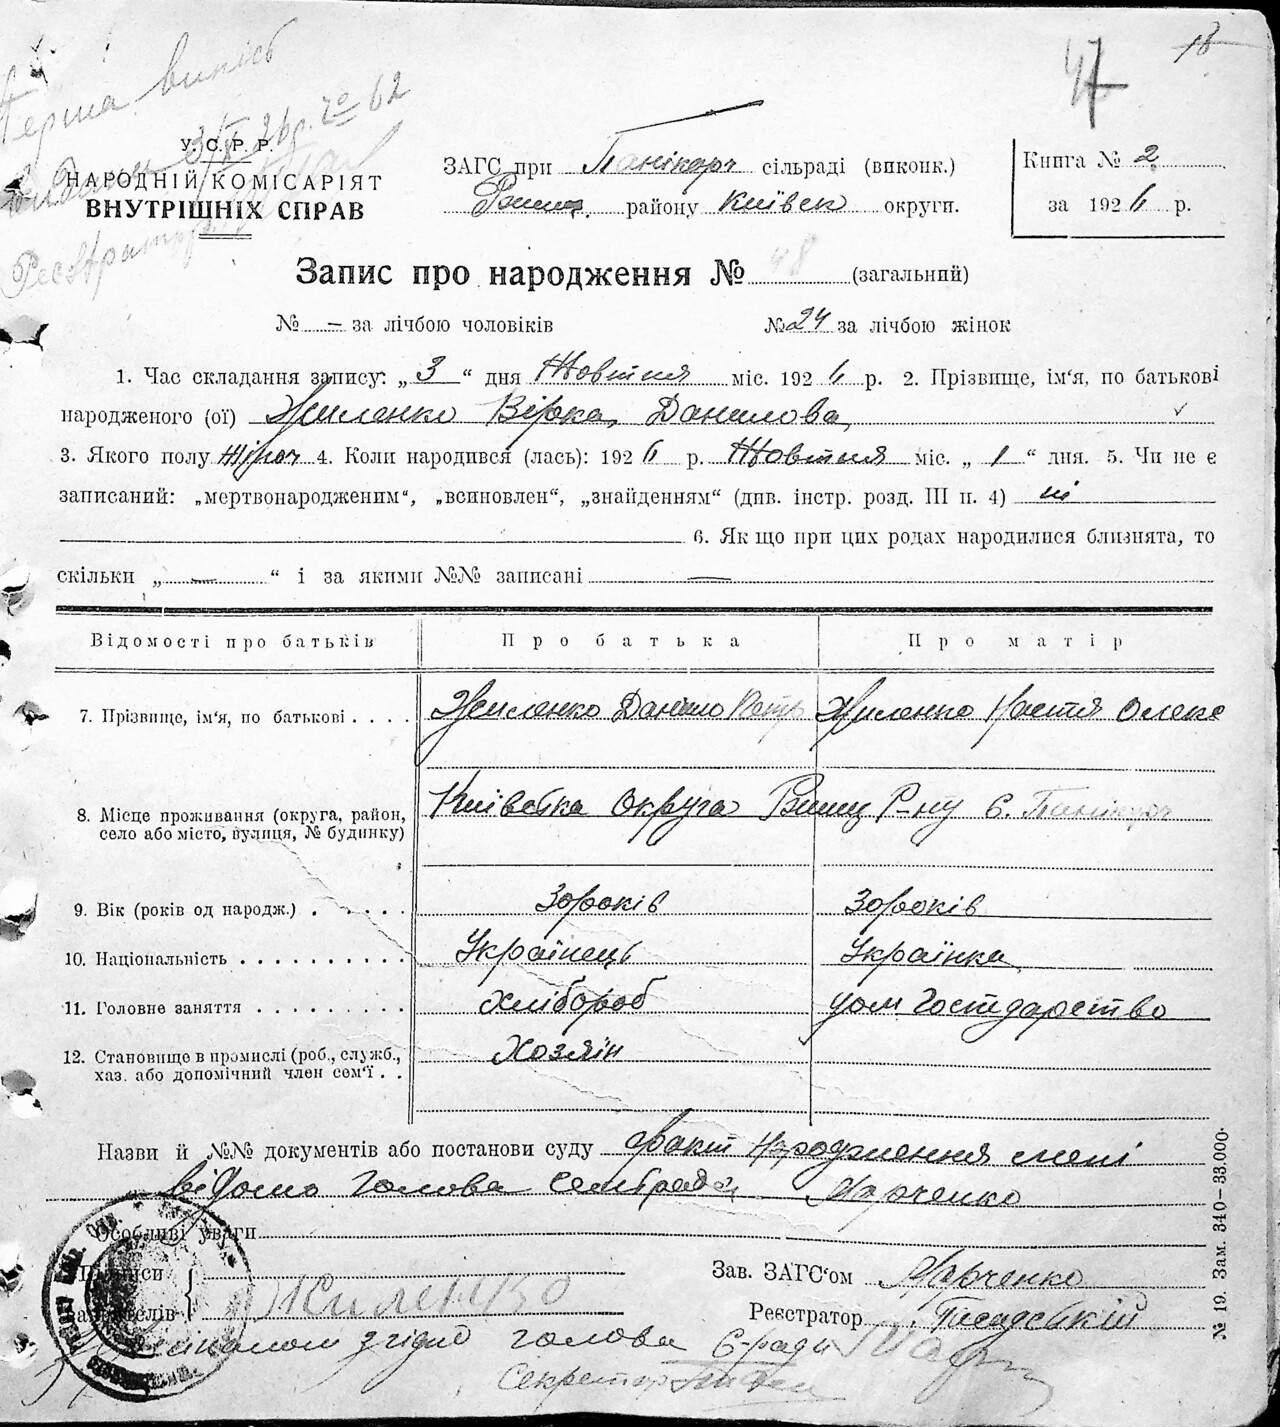 18
47
Перша випись
Видана 3/X 26 р. за № 62
Реєстратор
У. С. Р. Р.
НАРОДНІЙ КОМІСАРІЯТ
ВНУТРІШНІХ СПРАВ
ЗАГС при Панікарч сільраді (виконк.)
району Київськ округи.
Книга № 2
за 1926 р.
Запис про народження № 48 (загальний)
№ — за лічбою чоловіків № 24 за лічбою жінок
1. Час складання запису: „ 3 “ дня Жовтня міс. 1926 р. 2. Прізвище, ім'я, по батькові
народженого (ої) Жиленко Вірка Данилова
3. Якого полу жіноч 4. Коли народився (лась): 1926 р. Жовтня міс. „ 1 “ дня. 5. Чи не є
записаний: „мертвонародженим“, „всиновлен“, „знайденням“ (див. інстр. розд. III п. 4) ні
6. Як що при цих родах народилися близнята, то
скільки „ — “ і за якими №№ записані —
Відомості про батьків Про батька Про матір
7. Прізвище, ім'я, по батькові . . . . Жиленко Данило Петр Жиленко Настя Олекс
8. Місце проживання (округа, район, село або місто, вулиця, № будинку) Київська Округа Р-ну С. Панікарч
9. Вік (років од народж.) . . . . . . 30 років 30 років
10. Національність . . . . . . . . . . Українець Українка
11. Головне заняття . . . . . . . . . Хлібороб дом. Господарство
12. Становище в промислі (роб., служб., хаз. або допомічний член сем'ї . . Хозяїн
Назви й №№ документів або постанови суду Факт народження мені
відомо Голова Сельради Марченко
Особливі уваги
Підписи
заявителів Жиленко
Зав. ЗАГС'ом Марченко
Реєстратор Писадській
з гідно голова С-ради
Секретор
№ 19. Зам. 340–33.000.